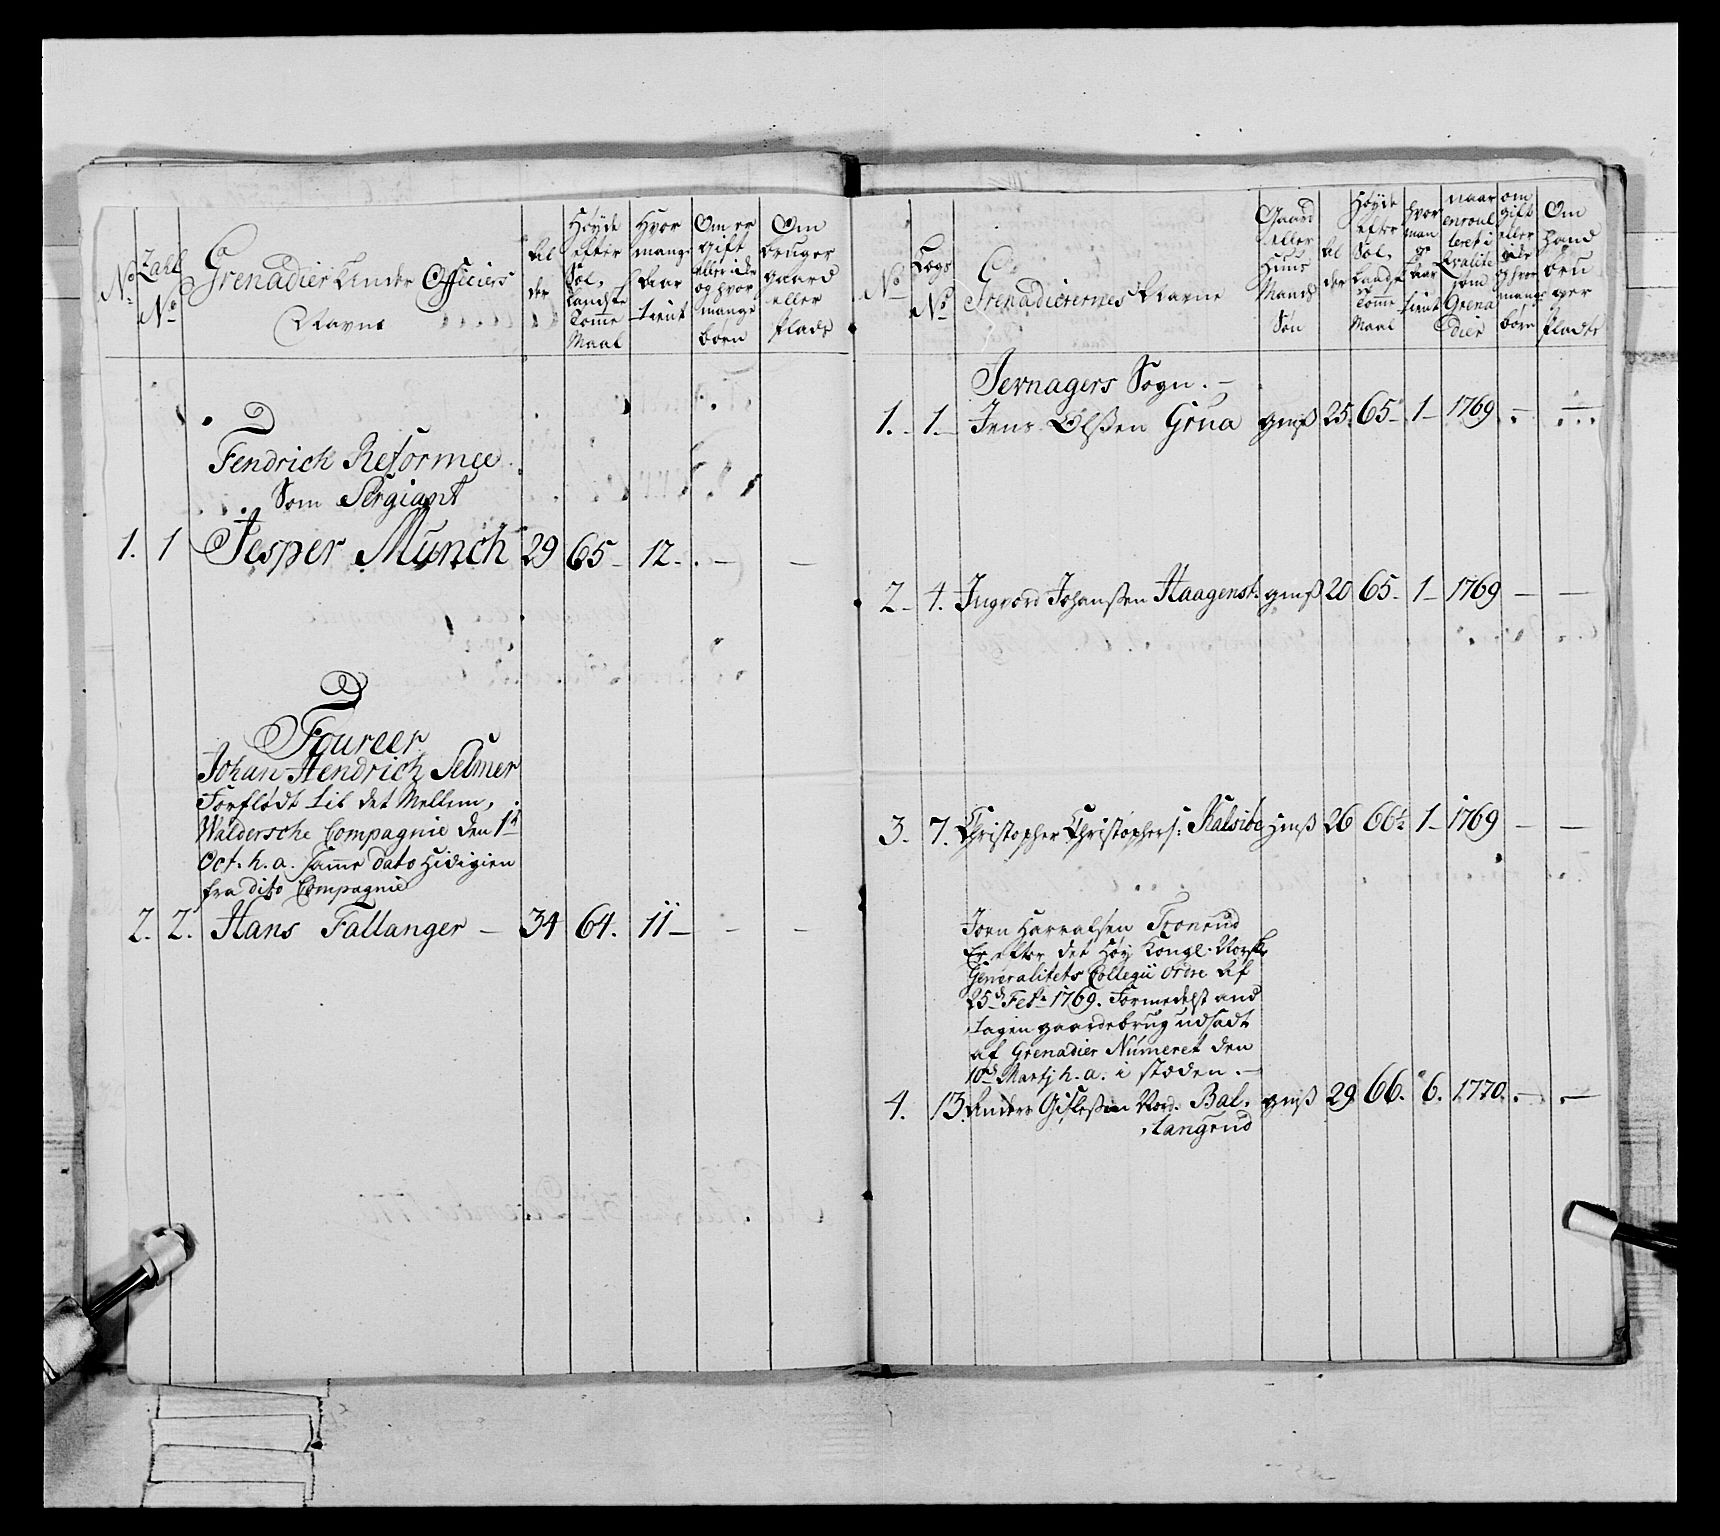 No
Zahl
No
Grenadier Under Officiers
Navne
Al
der
Høyde
efter
Sol.
Landske
Tomme
Maal
Hvor
mange
Aar
tient
Om er
gift
eller ikke
og hvor
mange
børn
Om
bruger
gaard
eller
plads
Fendrich Reformee
Som Sergiant
1. 1 Jesper Munch 29 65 – 12 – . – –
Foureer
Johan Hendrich Selmer
Forflødt til det Mellem,
Waldersche Compagnie den 1ste
Oct. h. a. samme dato hidigien
fra dito Compagnie
2. 2. Hans Fallanger – 34 64. 11 – – –
No
Logs
No
Grenadierernes Navne
Gaard
eller
Huus
Mands
Søn
Al
der
Høyde
efter
Sol.
Landske
Tomme
Maal
hvor
man
ge
Aar
tient
naar
enroul
leret i
Qvalite
som
Grena
dier
om
gift
eller
ikke
og hvor
mange
børn
Om
hand
bru
ger
plads
Jevnagers Sogn. –
1. – 1. – Jens Olssen Grua gmß 25. 65 – 1 – 1769 – –
2 – 4. Ingvord Johanssen Haagenst. gmß 20 65 – 1 – 1769 – –
3. 7. Christopher Christophers: Kalsibe hmß 26 66½ 1 – 1769 – –
Joen Harralsen Tronrud
Er efter det Høy Kongl. Norske
Generalitets Collegii ordre af
25d Febr 1769. Formedelst and
tagen gaardebrug udsadt
af Grenadier Numeret den
10d Martj h. a. i stæden. –
4. 13. Anders Gislessen Nord. Bal, gmß 29 66. 6. 1770. – –
langrud